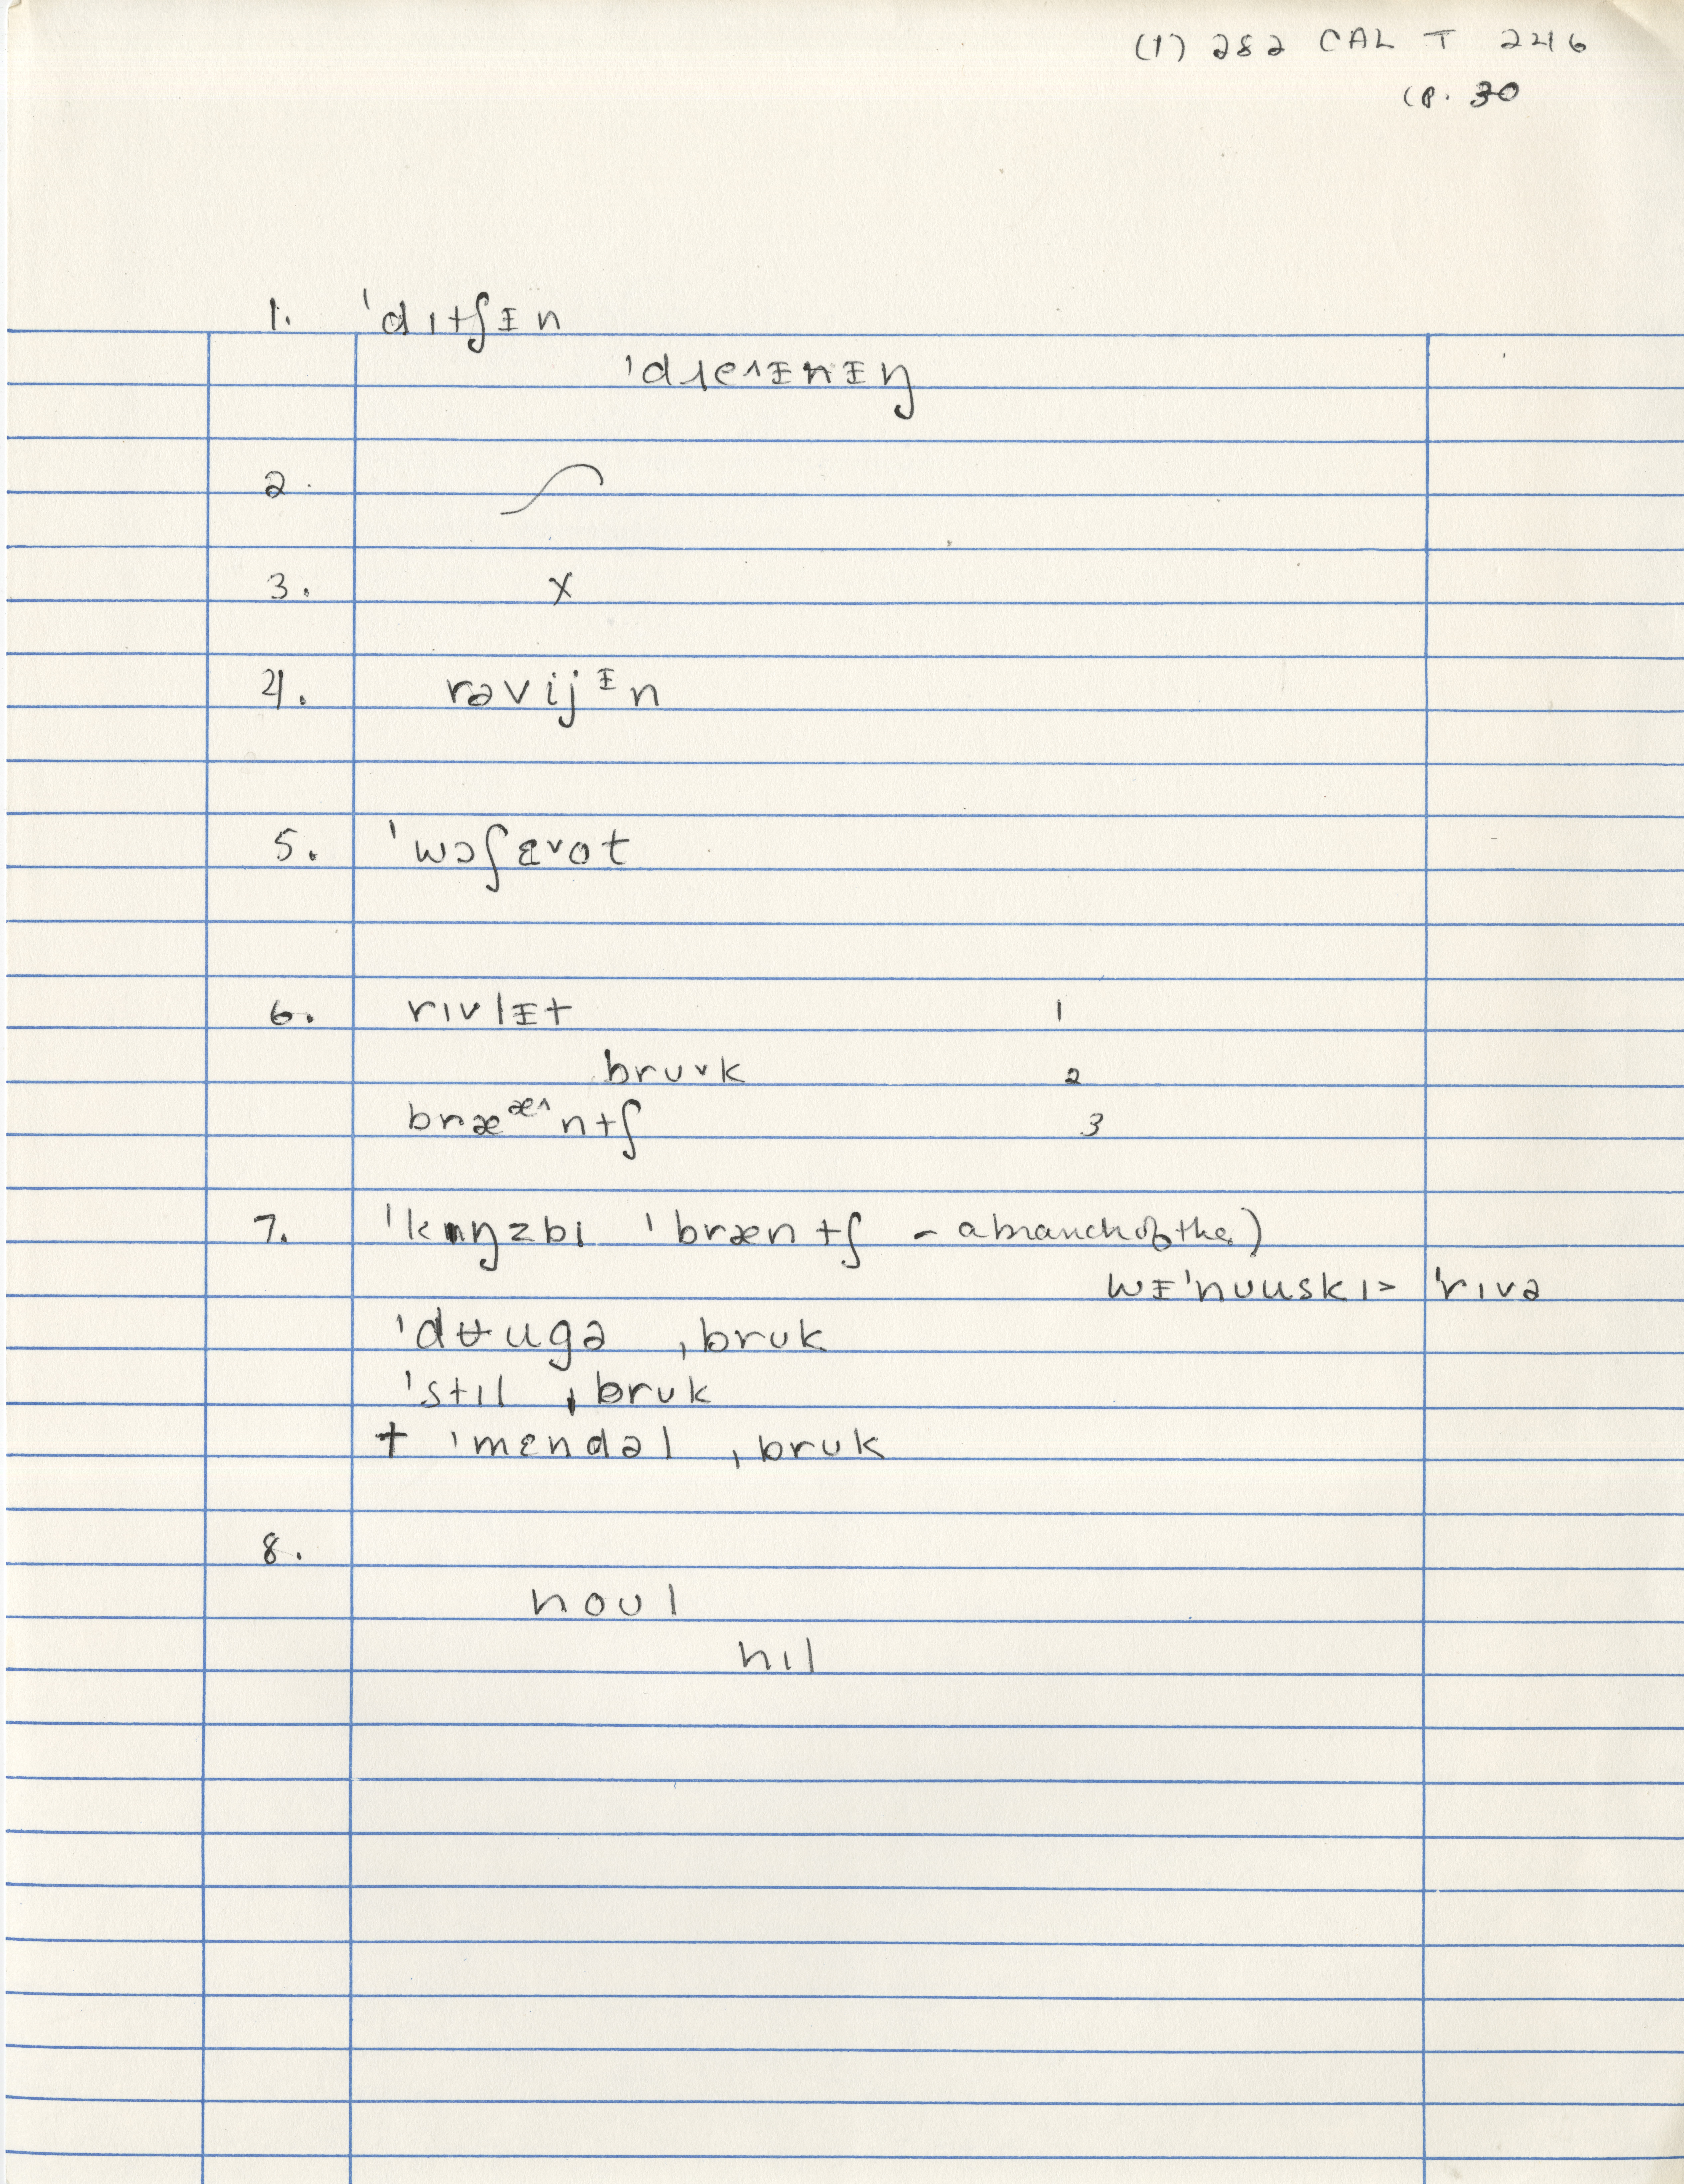 (1) 282 CAL T 246
(P. 30
1. ˈdɪtʃᵻn
ˈdɹeᶦnᵻŋ
2.
3. X
4. rəvijᵻn
5. ˈwɔʃɛᵛot
6. rɪvlᵻt 1
brʊᵛk 2
bræᵆ^ntʃ 3
7. ˈkɪŋzbɪ ˈbræntʃ - a branch of the)
wᵻˈnuuskɪ> ˈrɪvə
ˈdʉugə ˌbrʊk
ˈstɪl ˌbrʊk
† ˈmɛndəl ˌbrʊk
8.
noʊl
hɪl